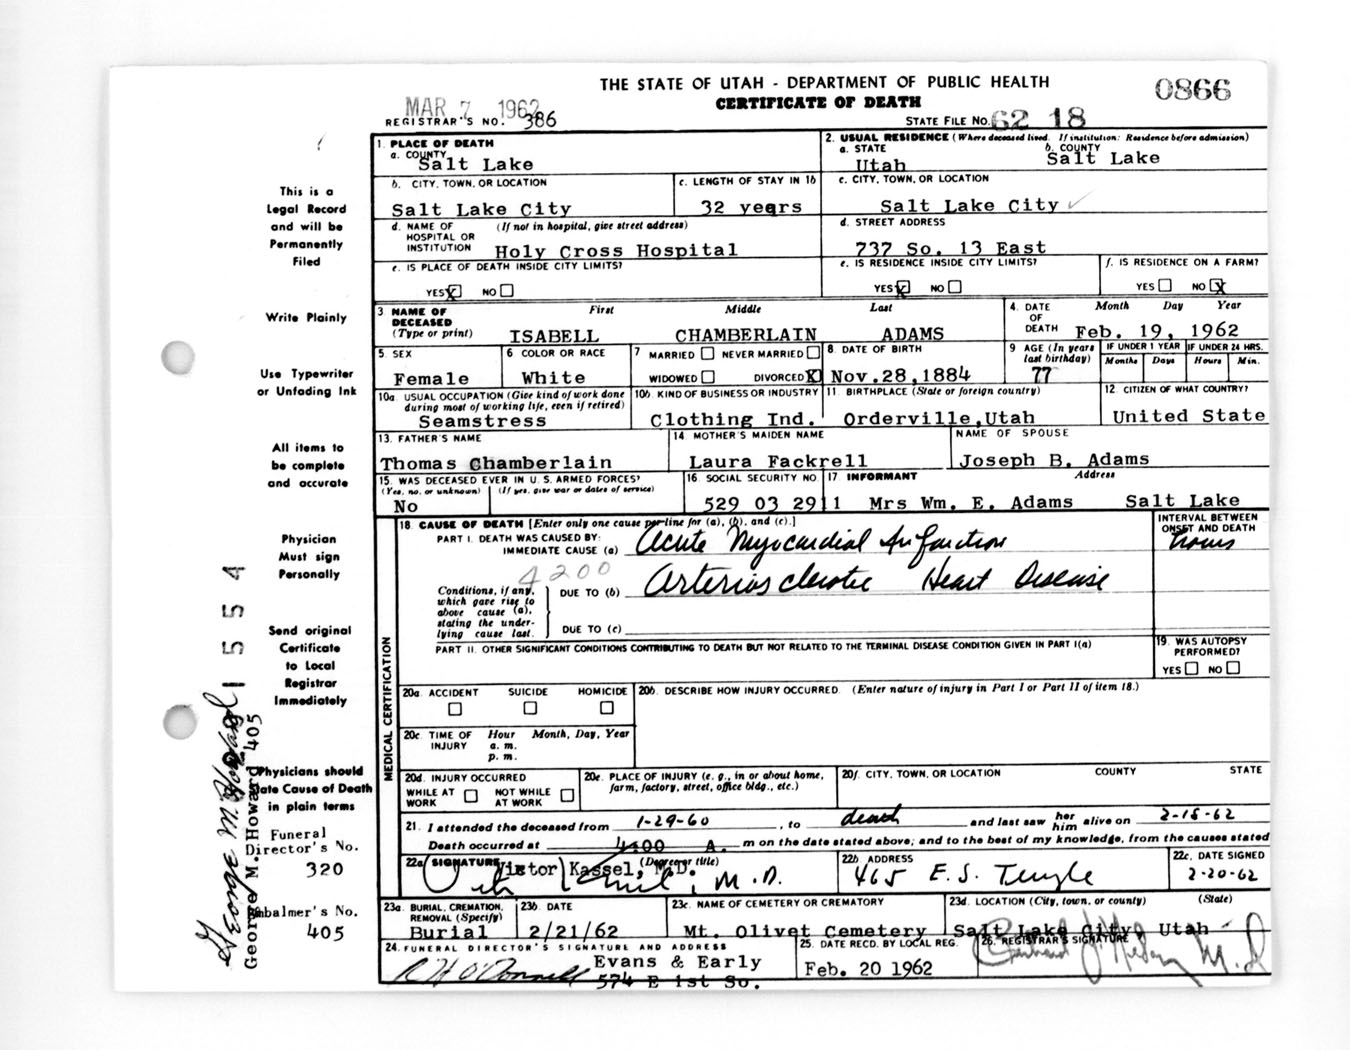 THE STATE OF UTAH - DEPARTMENT OF PUBLIC HEALTH
CERTIFICATE OF DEATH
0866
MAR 7 1962
REGISTRAR'S NO. 386
STATE FILE No. 62 18
This is a
Legal Record
and will be
Permanently
Filed
Write Plainly
Use Typewriter
or Unfading Ink
All items to
be complete
and accurate
Physician
Must sign
Personally
Send original
Certificate
to Local
Registrar
Immediately
Physicians should
state Cause of Death
in plain terms
Funeral
Director's No.
320
Embalmer's No.
405
1554
George M. Howard
George M. Howard 405
1. PLACE OF DEATH
a. COUNTY
Salt Lake
2. USUAL RESIDENCE (Where deceased lived. If institution: Residence before admission)
a. STATE b. COUNTY
Utah Salt Lake
b. CITY, TOWN, OR LOCATION
Salt Lake City
c. LENGTH OF STAY IN 1b
32 years
c. CITY, TOWN, OR LOCATION
Salt Lake City
d. NAME OF HOSPITAL OR INSTITUTION (If not in hospital, give street address)
Holy Cross Hospital
d. STREET ADDRESS
737 So. 13 East
e. IS PLACE OF DEATH INSIDE CITY LIMITS?
YES X NO
e. IS RESIDENCE INSIDE CITY LIMITS?
YES X NO
f. IS RESIDENCE ON A FARM?
YES NO X
3. NAME OF DECEASED (Type or print) First Middle Last
ISABELL CHAMBERLAIN ADAMS
4. DATE OF DEATH Month Day Year
Feb. 19, 1962
5. SEX
Female
6 COLOR OR RACE
White
7 MARRIED NEVER MARRIED
WIDOWED DIVORCED X
8. DATE OF BIRTH
Nov.28,1884
9 AGE (In years last birthday)
77
IF UNDER 1 YEAR
Months Days
IF UNDER 24 HRS.
Hours Min.
10a. USUAL OCCUPATION (Give kind of work done during most of working life, even if retired)
Seamstress
10b. KIND OF BUSINESS OR INDUSTRY
Clothing Ind.
11. BIRTHPLACE (State or foreign country)
Orderville,Utah
12 CITIZEN OF WHAT COUNTRY?
United State
13. FATHER'S NAME
Thomas Chamberlain
14 MOTHER'S MAIDEN NAME
Laura Fackrell
NAME OF SPOUSE
Joseph B. Adams
15. WAS DECEASED EVER IN U.S. ARMED FORCES?
(Yes, no, or unknown) (If yes, give war or dates of service)
No
16 SOCIAL SECURITY NO.
529 03 2911
17 INFORMANT Address
Mrs Wm. E. Adams Salt Lake
MEDICAL CERTIFICATION
18. CAUSE OF DEATH [Enter only one cause per line for (a), (b), and (c).]
INTERVAL BETWEEN ONSET AND DEATH
PART I. DEATH WAS CAUSED BY:
IMMEDIATE CAUSE (a) Acute Myocardial Infarction hours
4200
Conditions, if any, which gave rise to above cause (a), stating the underlying cause last.
DUE TO (b) Arteriosclerotic Heart Disease
DUE TO (c)
PART II. OTHER SIGNIFICANT CONDITIONS CONTRIBUTING TO DEATH BUT NOT RELATED TO THE TERMINAL DISEASE CONDITION GIVEN IN PART I(a)
19. WAS AUTOPSY PERFORMED?
YES NO
20a. ACCIDENT SUICIDE HOMICIDE
20b. DESCRIBE HOW INJURY OCCURRED. (Enter nature of injury in Part I or Part II of item 18.)
20c. TIME OF INJURY Hour Month, Day, Year
a. m.
p. m.
20d. INJURY OCCURRED
WHILE AT WORK NOT WHILE AT WORK
20e. PLACE OF INJURY (e. g., in or about home, farm, factory, street, office bldg., etc.)
20f. CITY, TOWN, OR LOCATION COUNTY STATE
21. I attended the deceased from 1-29-60, to death and last saw her him alive on 2-18-62
Death occurred at 4:00 A. m on the date stated above; and to the best of my knowledge, from the causes stated
22a SIGNATURE (Degree or title)
Victor Kassel, M.D.
M.D.
22b ADDRESS
465 E. S. Temple
22c. DATE SIGNED
2-20-62
23a. BURIAL, CREMATION, REMOVAL (Specify)
Burial
23b. DATE
2/21/62
23c. NAME OF CEMETERY OR CREMATORY
Mt. Olivet Cemetery
23d. LOCATION (City, town, or county) (State)
Salt Lake City, Utah
24. FUNERAL DIRECTOR'S SIGNATURE AND ADDRESS
R H O'Donnell
Evans & Early
574 E 1st So.
25. DATE RECD. BY LOCAL REG.
Feb. 20 1962
26. REGISTRAR'S SIGNATURE